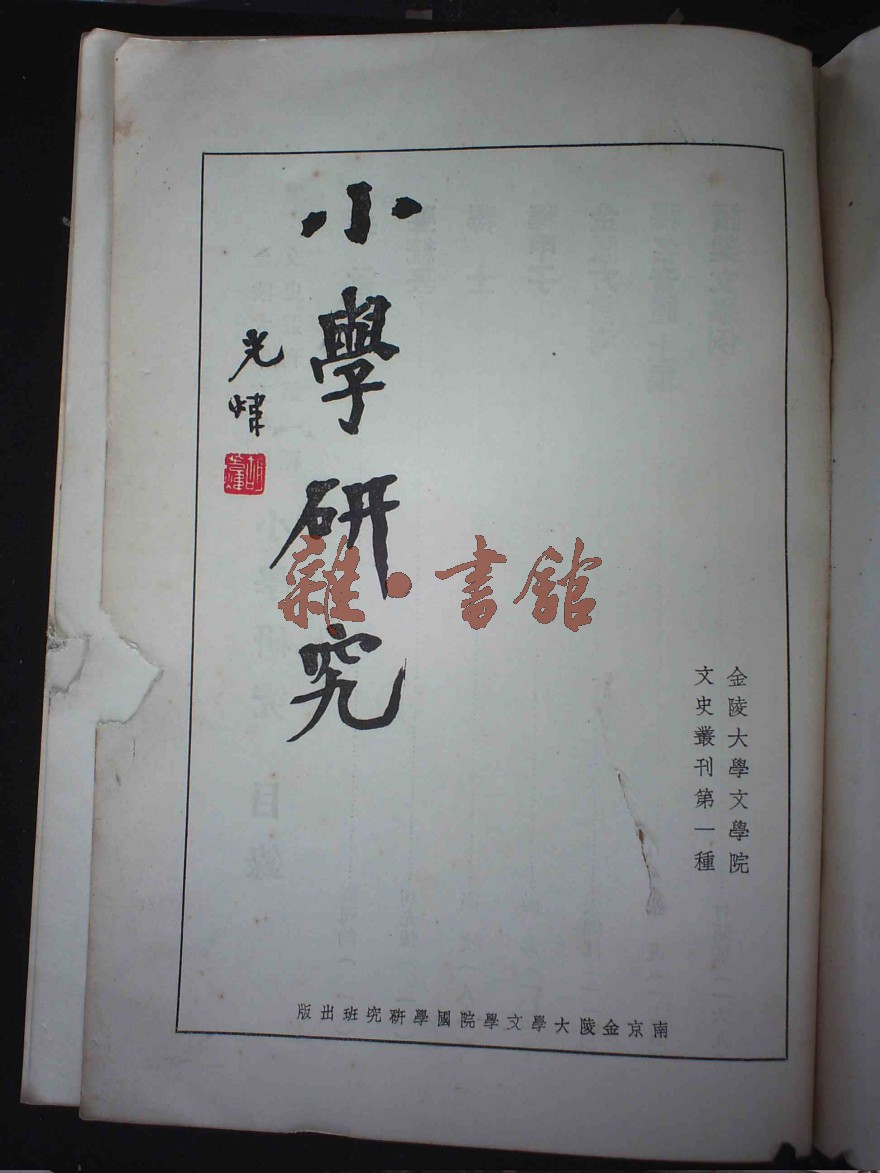 金陵大學文學院
文史叢刊第一種
小學研究
光煒
胡光煒
雜·書館
南京金陵大學文學院國學研究班出版